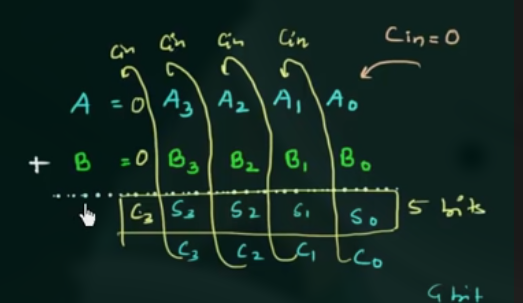 Cin Cin Cin Cin Cin=0
A = 0 A3 A2 A1 A0
+ B = 0 B3 B2 B1 B0
C3 S3 S2 S1 S0 5 bits
C3 C2 C1 C0
bit